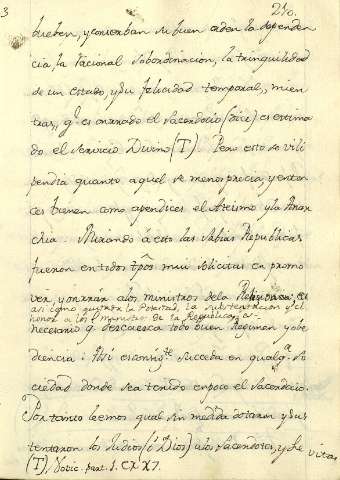 3 210.
prueben, y conserban su buen orden la dependen
cia, la racional subordinacion, la tranquilidad
de un estado, y su felicidad temporal, mien
tras, q.e es onrrado el Sacerdocio (dice) es estima
do el servicio Divino (T) Pero esto se vili
pendia quanto aquel se menosprecia, y enton
ces bienen como apendices el Ateismo y la Anar
chia. Mirando á esto las sabias Republicas
fueron en todos tp̃os mui solicitas en promo
ver, y onrrar a los ministros de la Religion es
asi como quitada la Potestad, la sustentacion y el
honor a los Ministros de la Republica, es
necesario q. descaesca todo buen Regimen y obe
diencia: Asi es consig.te suceda en qualq.a so
ciedad donde sea tenido en poco el Sacerdocio.
Por tanto leemos qual sin medida dotaron y sus
tentaron los Judios (ó Dios) a los Sacerdotes, y Le vitas
(T) Notic. part. 1. C.